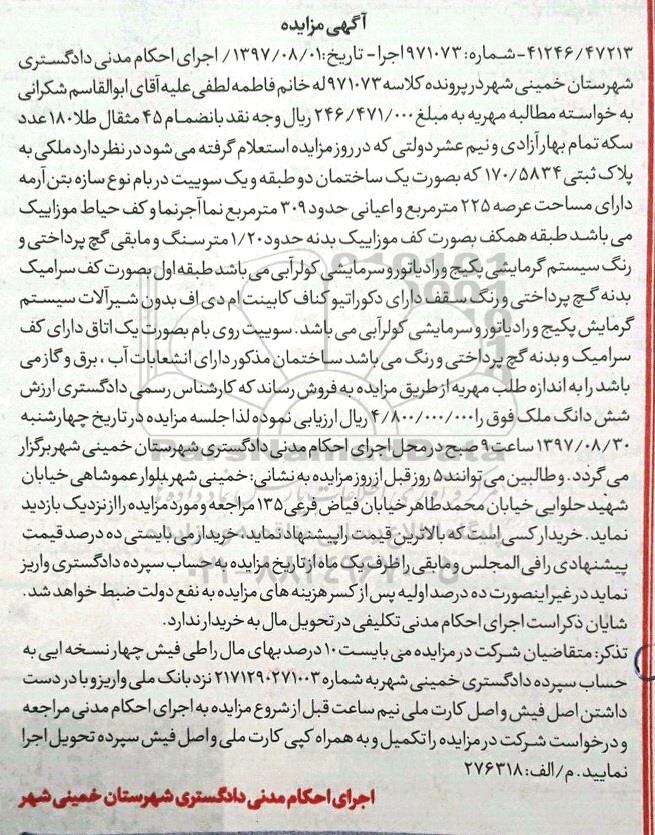 آگهی مزایده
۴۱۲۴۶/۴۷۲۱۳-شماره: ۹۷۱۰۷۳اجرا- تاریخ:۱۳۹۷/۰۸/۰۱/ اجرای احکام مدنی دادگستری
شهرستان خمینی شهر در پرونده کلاسه ۹۷۱۰۷۳له خانم فاطمه لطفی علیه آقای ابوالقاسم شکرانی
به خواسته مطالبه مهریه به مبلغ ۲۴۶/۴۷۱/۰۰۰ ریال وجه نقد بانضمام ۴۵ مثقال طلا۱۸۰ عدد
سکه تمام بهار آزادی و نیم عشر دولتی که در روز مزایده استعلام گرفته می شود در نظر دارد ملکی به
پلاک ثبتی ۱۷۰/۵۸۳۴ که بصورت یک ساختمان دو طبقه و یک سوییت در بام نوع سازه بتن آرمه
دارای مساحت عرصه ۲۲۵ مترمربع و اعیانی حدود ۳۰۹ مترمربع نما آجرنما و کف حیاط موزاییک
می باشد طبقه همکف بصورت کف موزاییک بدنه حدود۱/۲۰ متر سنگ و مابقی گچ پرداختی و
رنگ سیستم گرمایشی پکیج و رادیاتور و سرمایشی کولرآبی می باشد طبقه اول بصورت کف سرامیک
بدنه گچ پرداختی و رنگ سقف دارای دکوراتیو کناف کابینت ام دی اف بدون شیرآلات سیستم
گرمایش پکیج و رادیاتور و سرمایشی کولرآبی می باشد. سوییت روی بام بصورت یک اتاق دارای کف
سرامیک و بدنه گچ پرداختی و رنگ می باشد ساختمان مذکور دارای انشعابات آب ، برق و گاز می
باشد را به اندازه طلب مهریه از طریق مزایده به فروش رساند که کارشناس رسمی دادگستری ارزش
شش دانگ ملک فوق را۴/۸۰۰/۰۰۰/۰۰۰ ریال ارزیابی نموده لذا جلسه مزایده در تاریخ چهارشنبه
۱۳۹۷/۰۸/۳۰ ساعت ۹ صبح در محل اجرای احکام مدنی دادگستری شهرستان خمینی شهر برگزار
می گردد. و طالبین می توانند۵ روز قبل از روز مزایده به نشانی: خمینی شهر بلوار عموشاهی خیابان
شهید حلوایی خیابان محمدطاهر خیابان فیاض فرعی۱۳۵ مراجعه و مورد مزایده را از نزدیک بازدید
نماید. خریدار کسی است که بالاترین قیمت را پیشنهاد نماید، خریدار می بایستی ده درصد قیمت
پیشنهادی را فی المجلس و مابقی را ظرف یک ماه از تاریخ مزایده به حساب سپرده دادگستری واریز
نماید در غیر اینصورت ده درصد اولیه پس از کسر هزینه های مزایده به نفع دولت ضبط خواهد شد.
شایان ذکر است اجرای احکام مدنی تکلیفی در تحویل مال به خریدار ندارد.
تذکر: متقاضیان شرکت در مزایده می بایست ۱۰ درصد بهای مال را طی فیش چهار نسخه ایی به
حساب سپرده دادگستری خمینی شهر به شماره ۲۱۷۱۲۹۰۲۷۱۰۰۳ نزد بانک ملی واریز و با در دست
داشتن اصل فیش و اصل کارت ملی نیم ساعت قبل از شروع مزایده به اجرای احکام مدنی مراجعه
و درخواست شرکت در مزایده را تکمیل و به همراه کپی کارت ملی و اصل فیش سپرده تحویل اجرا
نمایید. م/الف: ۲۷۶۳۱۸
اجرای احکام مدنی دادگستری شهرستان خمینی شهر